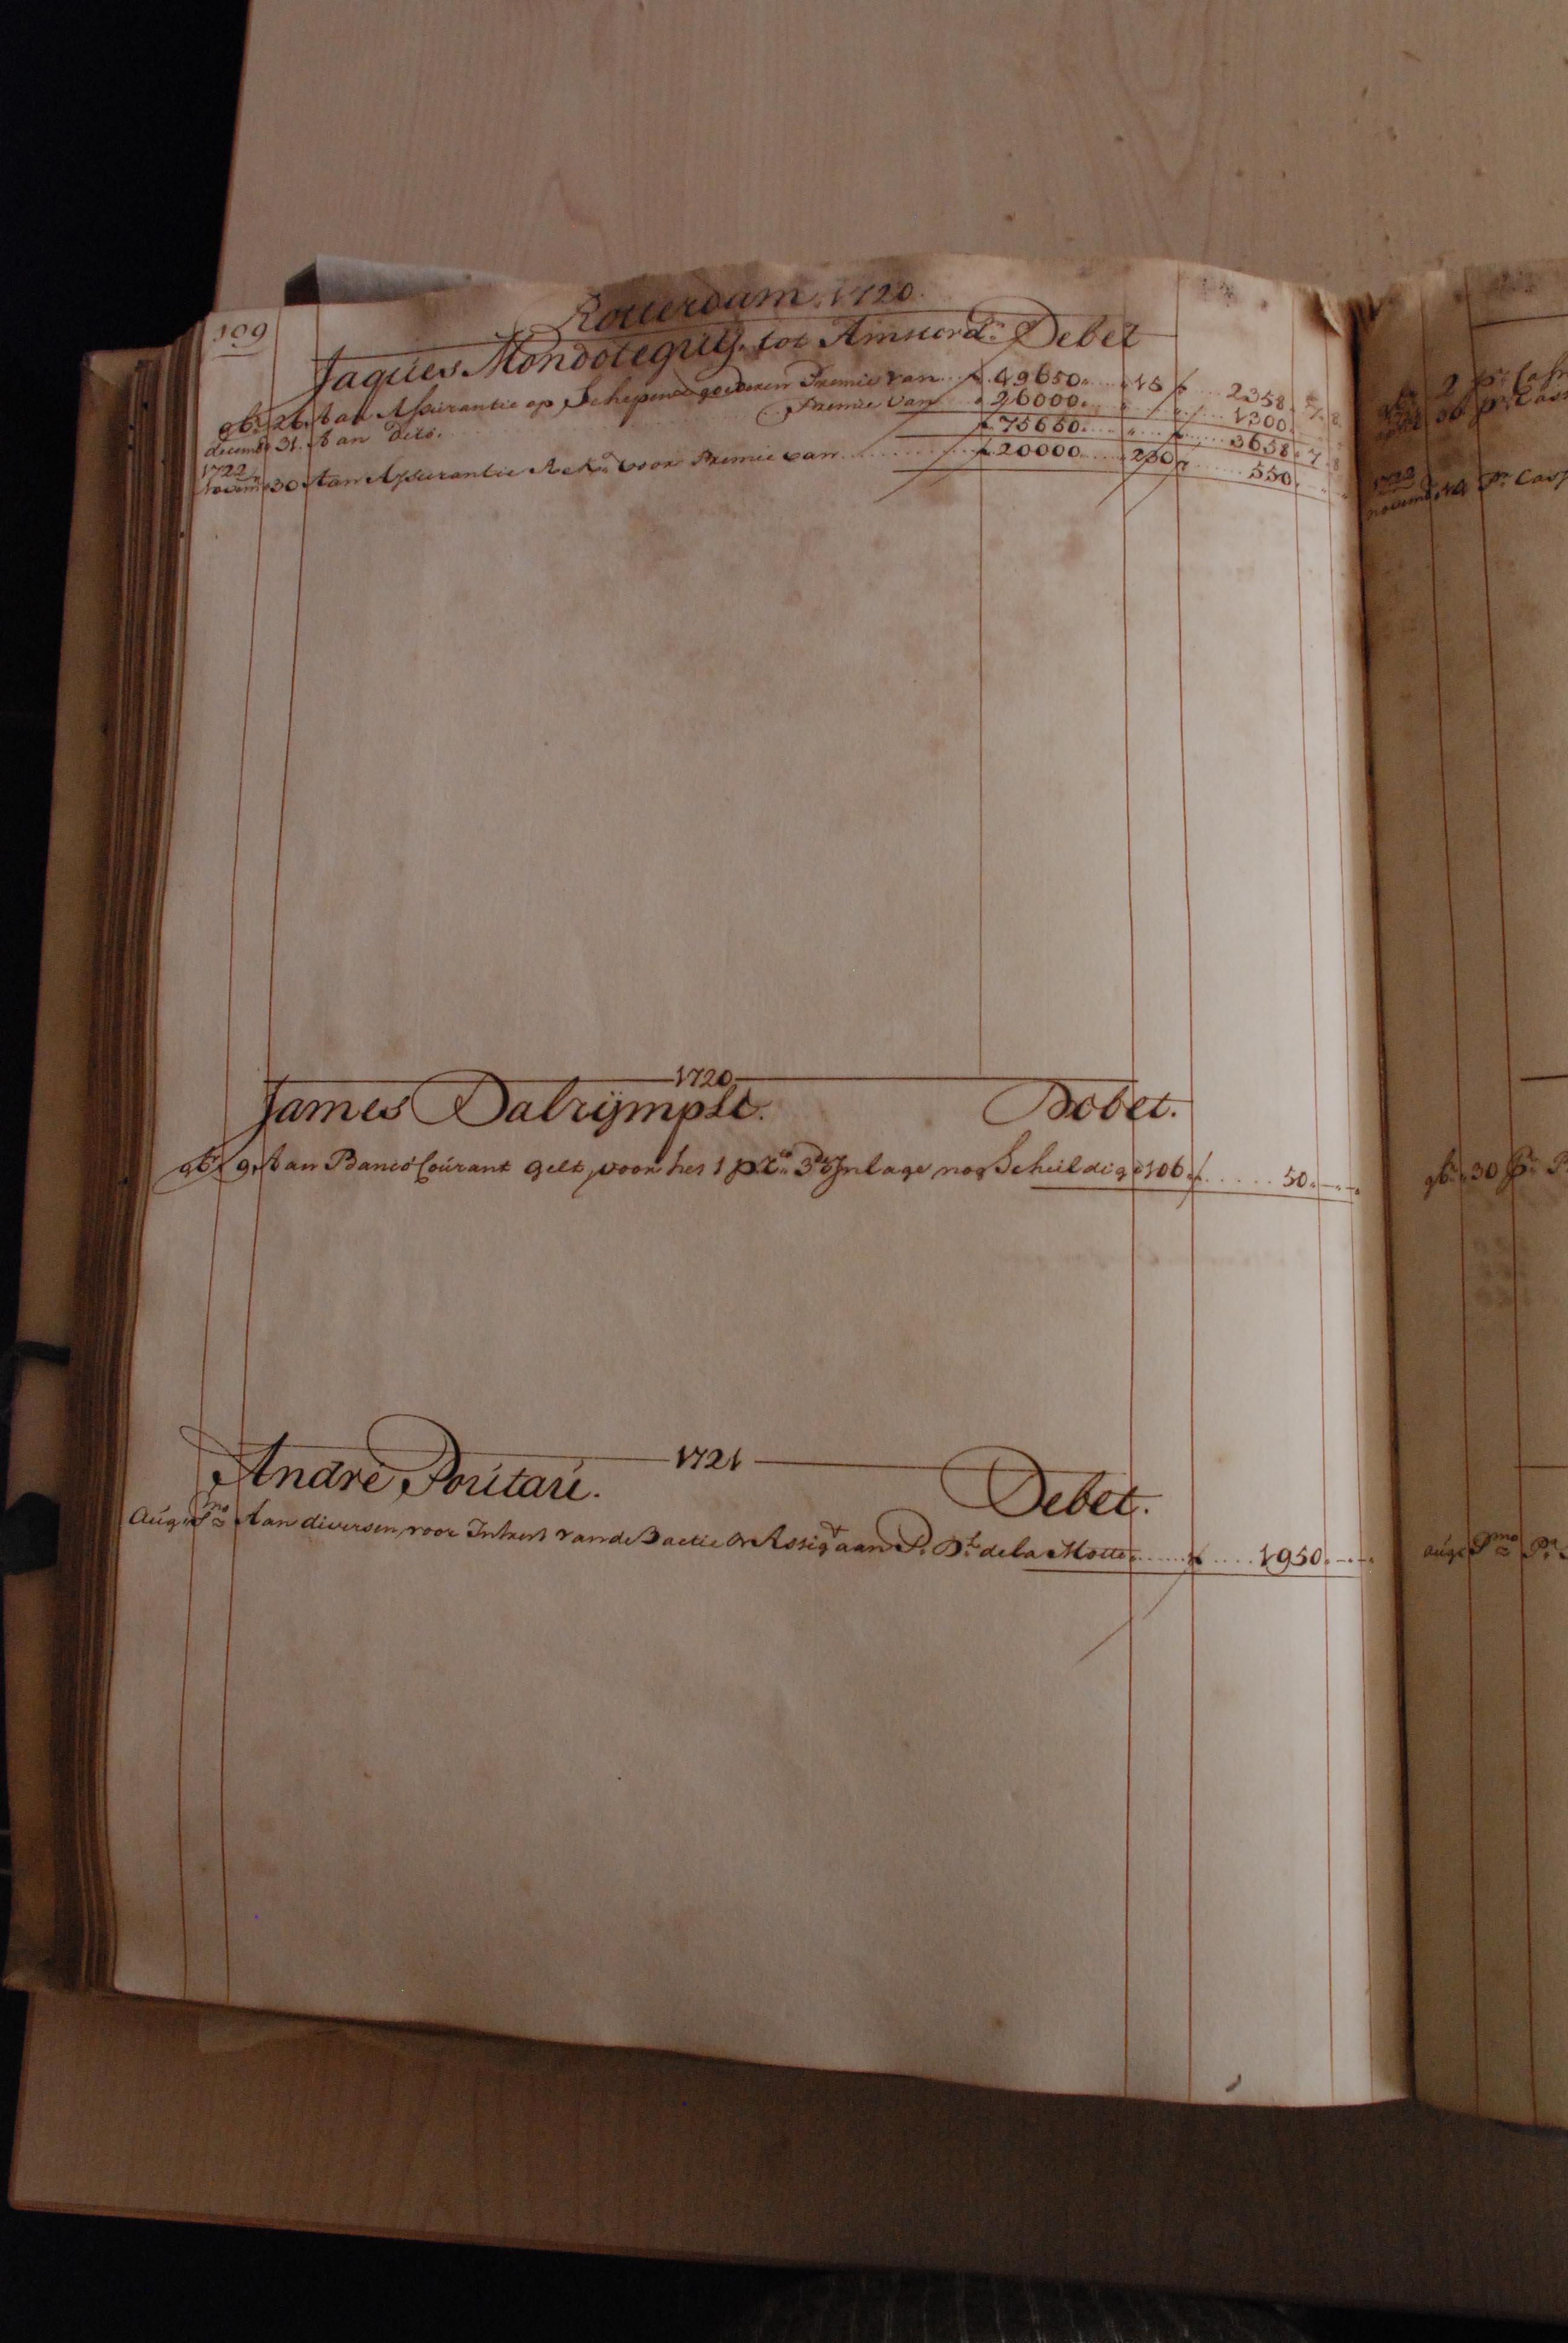 109
Rotterdam. 1720.
Jaques Mondoteguy. tot Amsterd.m Debet
9b.r 26. Aan Assurantie op Schepen en goederen Premie van f 49650. 15 f 2358. 7. 8
decemb 31. Aan Dito. Premie Van 26000. 1300.
f 75650. f 3658. 7. 8
1722
novem 30 Aan Assurantie Rek.g voor Premie van f 20000 230 550.
1720
James Dalrijmple. Debet.
9b.r 9. Aan Banco Courant gelt, voor het 1 p.r C.to 3.de Inlage nog Schuldig 106 f 50.
1721
André Poutau. Debet.
Aug. P.mo Aan diversen voor Intrest van de 3 actie Assig.t aan P. D.l de la Motte f 1950.
9b.r 2 p.r Cass
30 p.r Cass
1722
novemb 14 P.r Cass
9b.r 30 p.r
aug. P.mo P.r